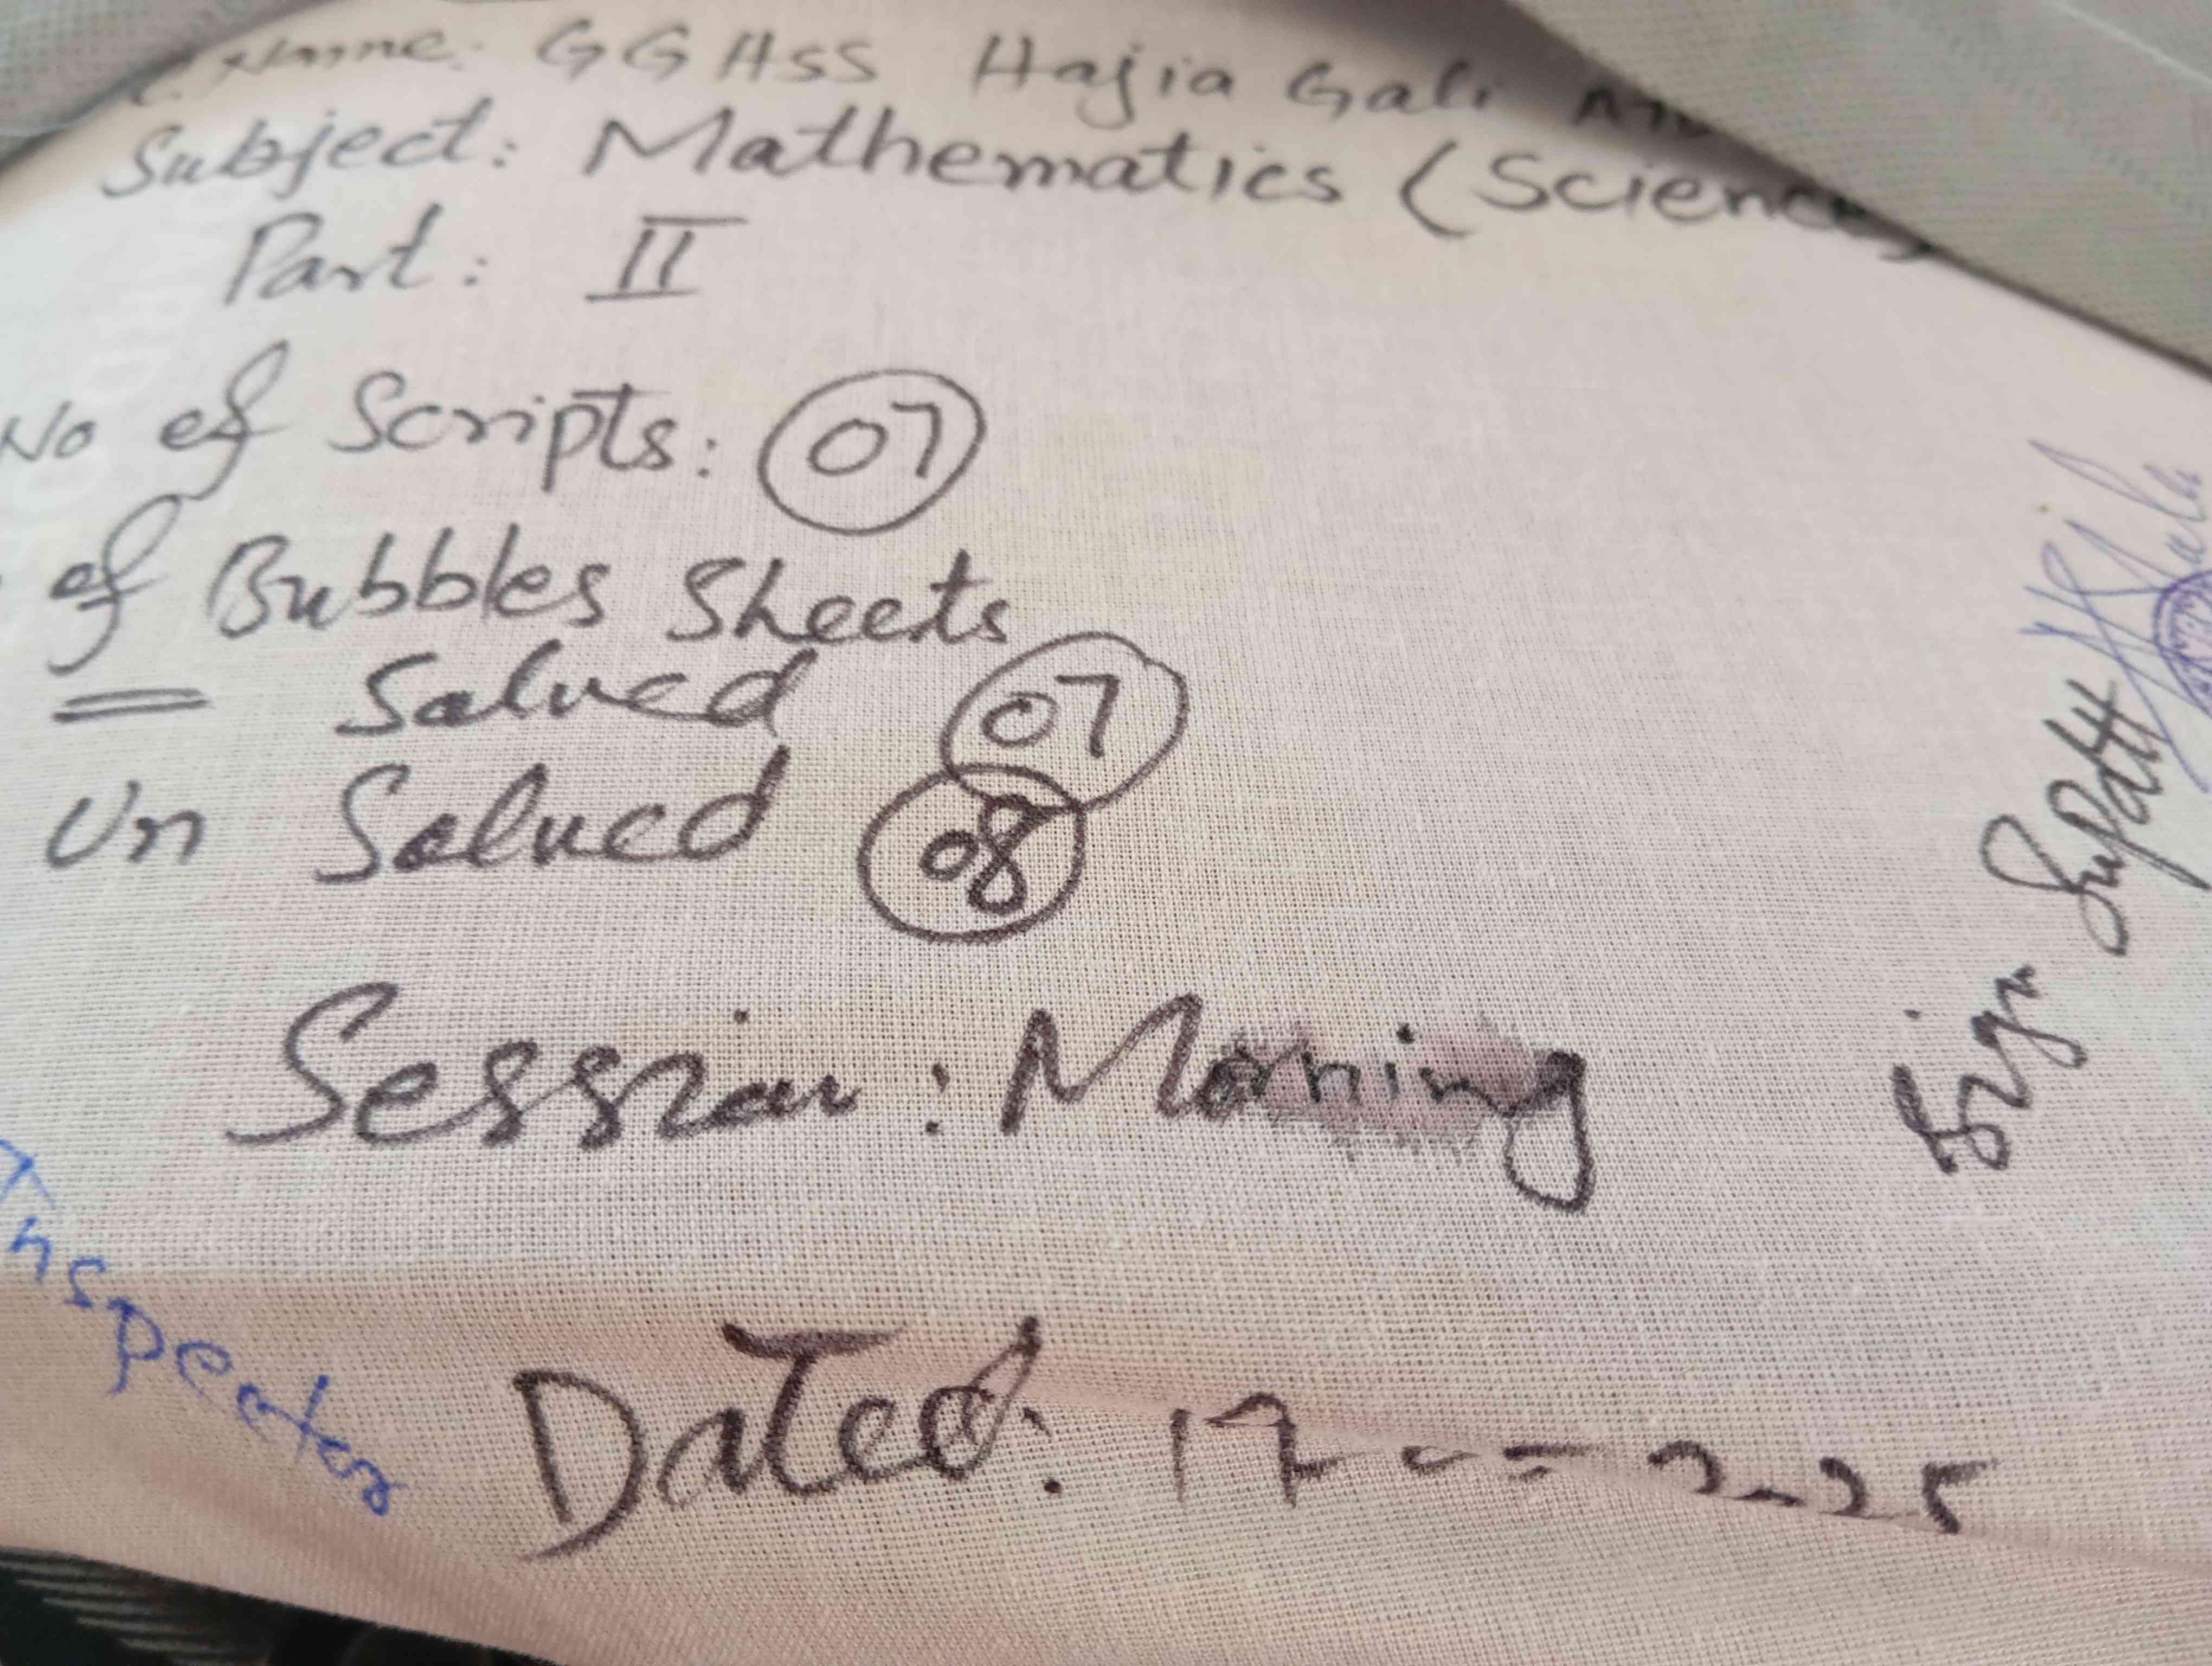 Name. GGHSS Hajia Gali
Subject: Mathematics (Science)
Part: II
No of Scripts: 07
of Bubbles Sheets
= Solved 07
Un Solved 08
Session: Morning
Dated: 17
Inspector
Sign Supdtt